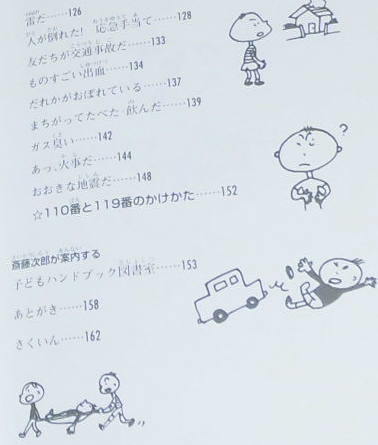 雷だ……126
人が倒れた! 応急手当て……128
友だちが交通事故だ……133
ものすごい出血……134
だれかがおぼれている……137
まちがってたべた・飲んだ……139
ガス臭い……142
あっ、火事だ……144
おおきな地震だ……148
☆110番と119番のかけかた……152
斎藤次郎が案内する
子どもハンドブック図書室……153
あとがき……158
さくいん……162
?